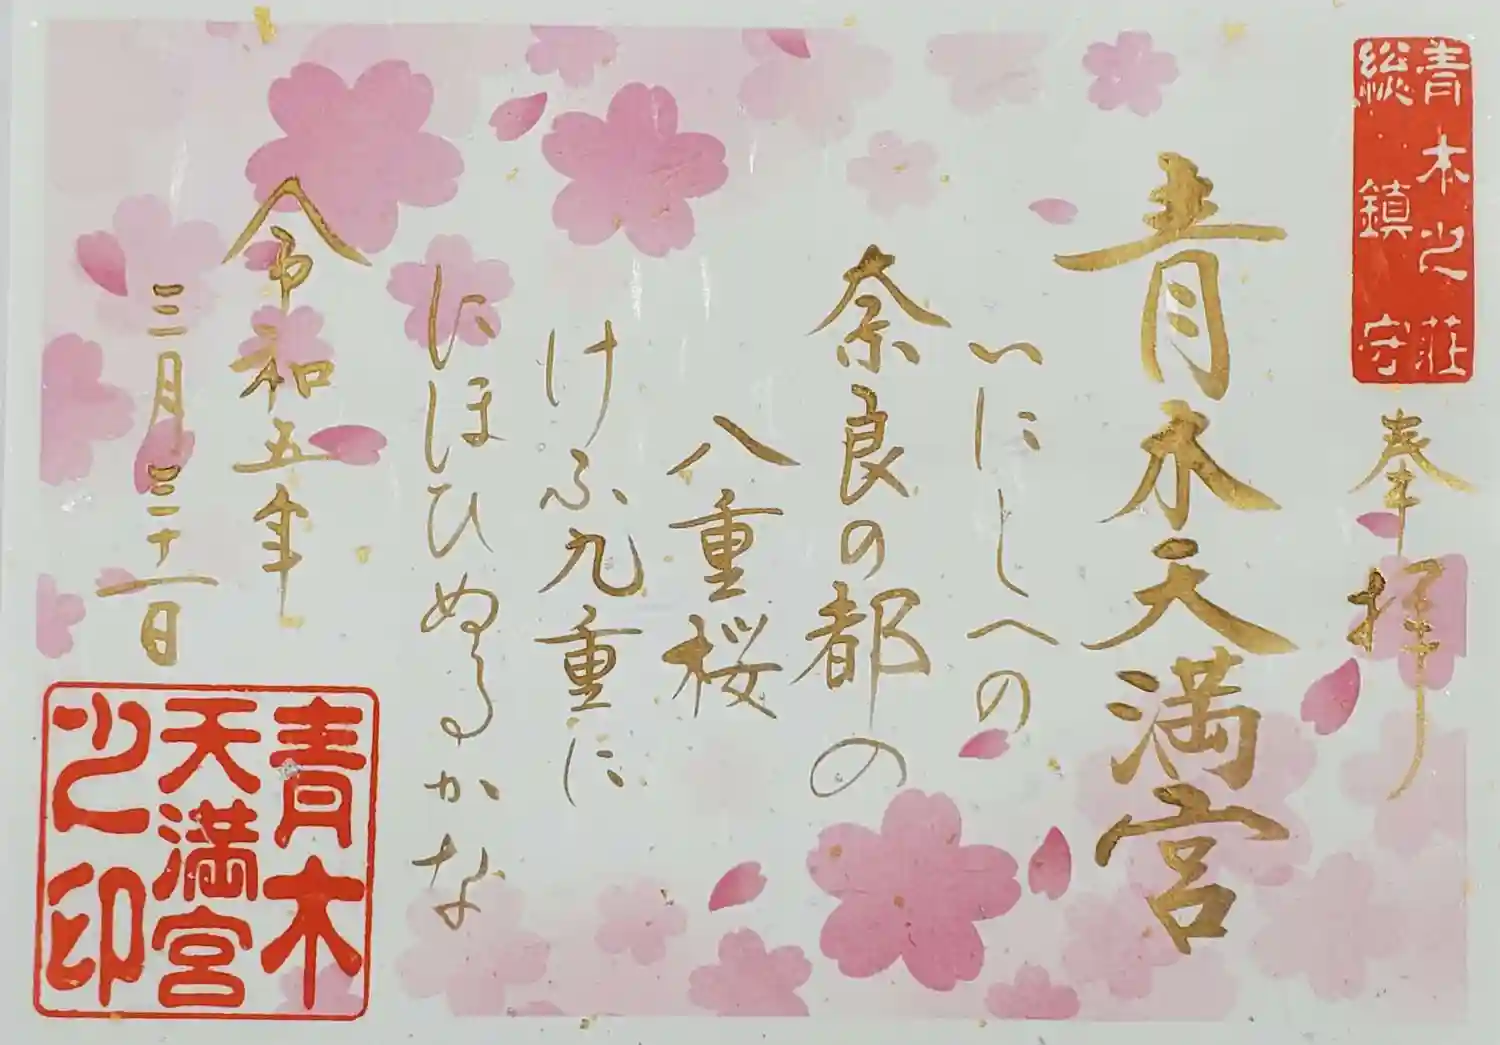 青木之荘
総鎮守
奉拝
青木天満宮
いにしへの
奈良の都の
八重桜
けふ九重に
にほひぬるかな
令和五年
三月三十一日
青木
天満宮
之印